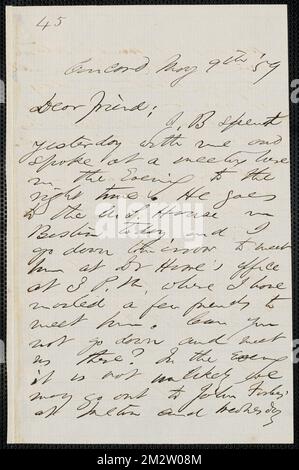 45
Concord May 9th '59
Dear friend;
J. B spent
yesterday with me and
spoke at a meeting here
in the Evening to the
right tune. He goes
to the U.S. House in
Boston today, and I
go down tomorrow to meet
him at Dr Howe's office
at 3 P.M. where I have
invited a few friends to
meet him. Can you
not go down and meet
us there? In the Evening
it is not unlikely we
may go out to John Forbes'
at Milton and Wednesday
alamy
Image ID: 2M2W08M
www.alamy.com